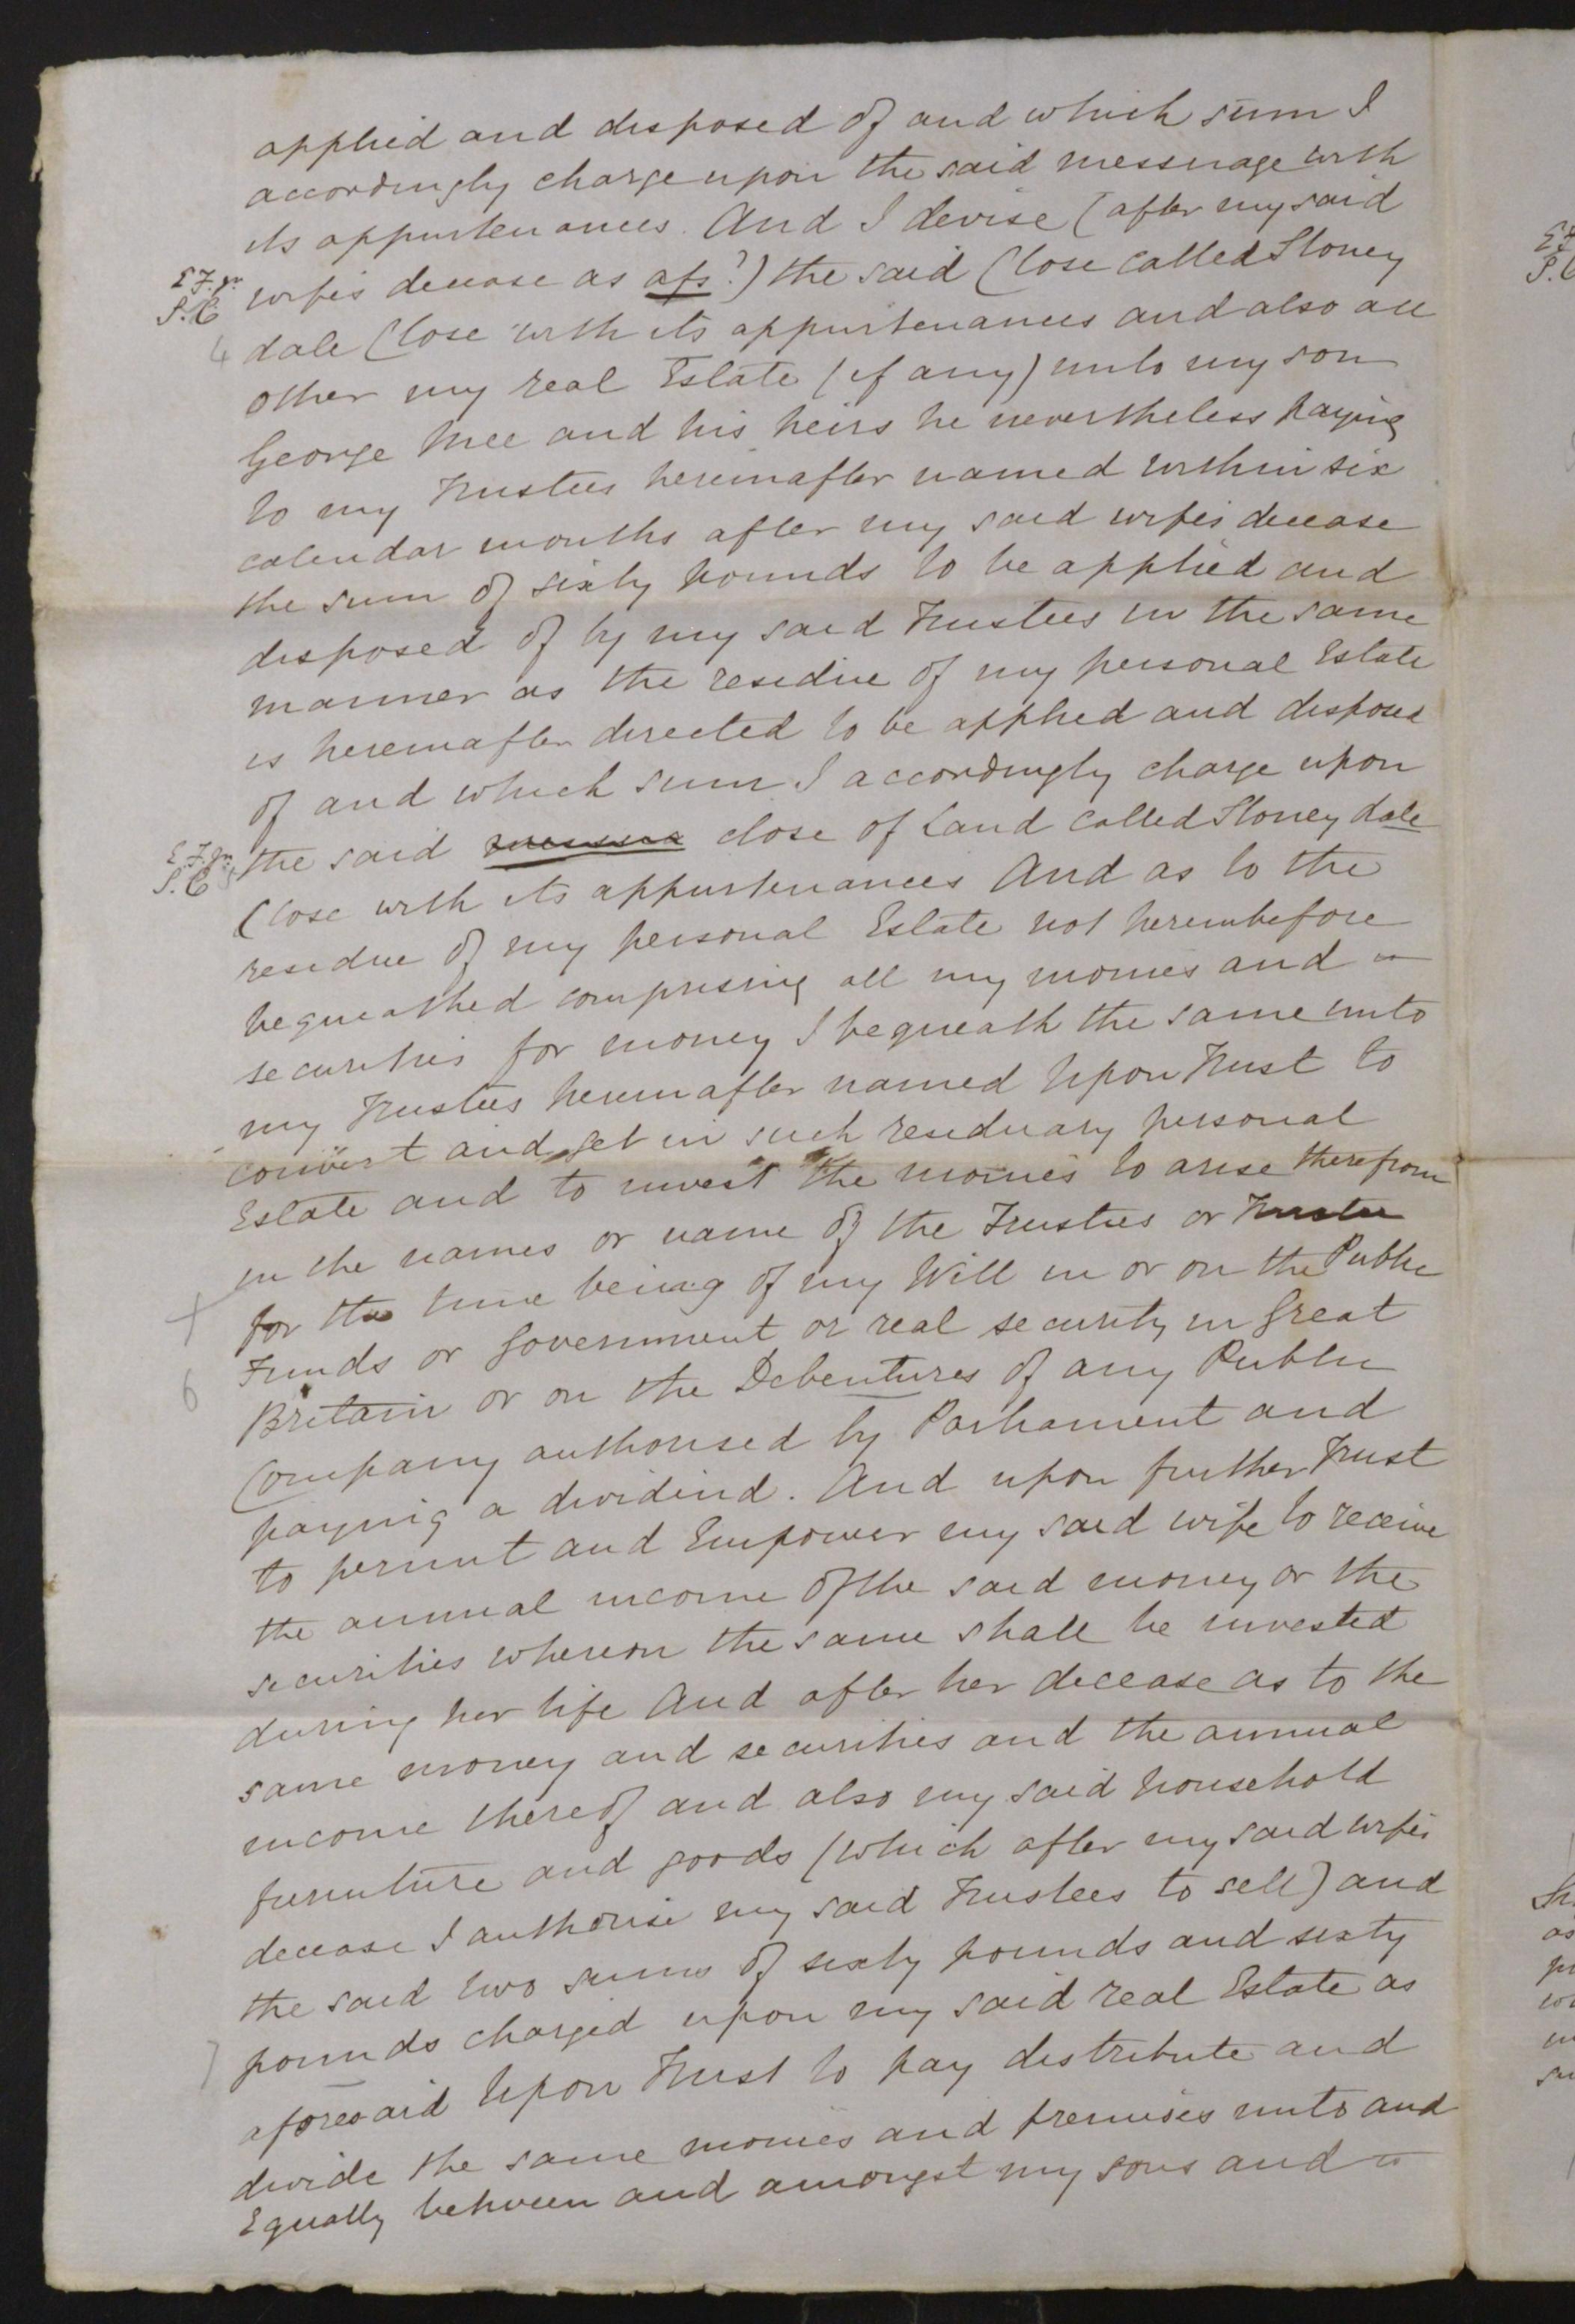 applied and disposed of and which sum I
accordingly charge upon the said messuage with
its appurtenances. And I devise (after my said
E F. jr. wife's decease as afs.d) the said Close called Stoney
S. C
4 dale Close with its appurtenances and also all
other my real Estate (if any) unto my son
George Mee and his heirs he nevertheless paying
to my Trustees hereinafter named within six
calendar months after my said wife's decease
the sum of sixty pounds to be applied and
disposed of by my said Trustees in the same
manner as the residue of my personal Estate
is hereinafter directed to be applied and disposed
of and which sum I accordingly charge upon
E. F. jr. the said close of Land called Stoney dale
S. C 5
Close with its appurtenances And as to the
residue of my personal Estate not hereinbefore
bequeathed comprising all my monies and
securities for money I bequeath the same unto
my Trustees hereinafter named Upon Trust to
convert and get in such residuary personal
Estate and to invest the monies to arise therefrom
in the names or name of the Trustees or Trustee
for the time being of my Will in or on the Public
Funds or Government or real security in Great
6 Britain or on the Debentures of any Public
Company authorised by Parliament and
paying a dividend. And upon further Trust
to permit and Empower my said wife to receive
the annual income of the said money or the
securities whereon the same shall be invested
during her life And after her decease as to the
same money and securities and the annual
income thereof and also my said household
furniture and goods (which after my said wife's
decease I authorise my said Trustees to sell) and
the said two sums of sixty pounds and sixty
7 pounds charged upon my said real Estate as
aforesaid Upon Trust to pay distribute and
divide the same monies and premises unto and
Equally between and amongst my sons and